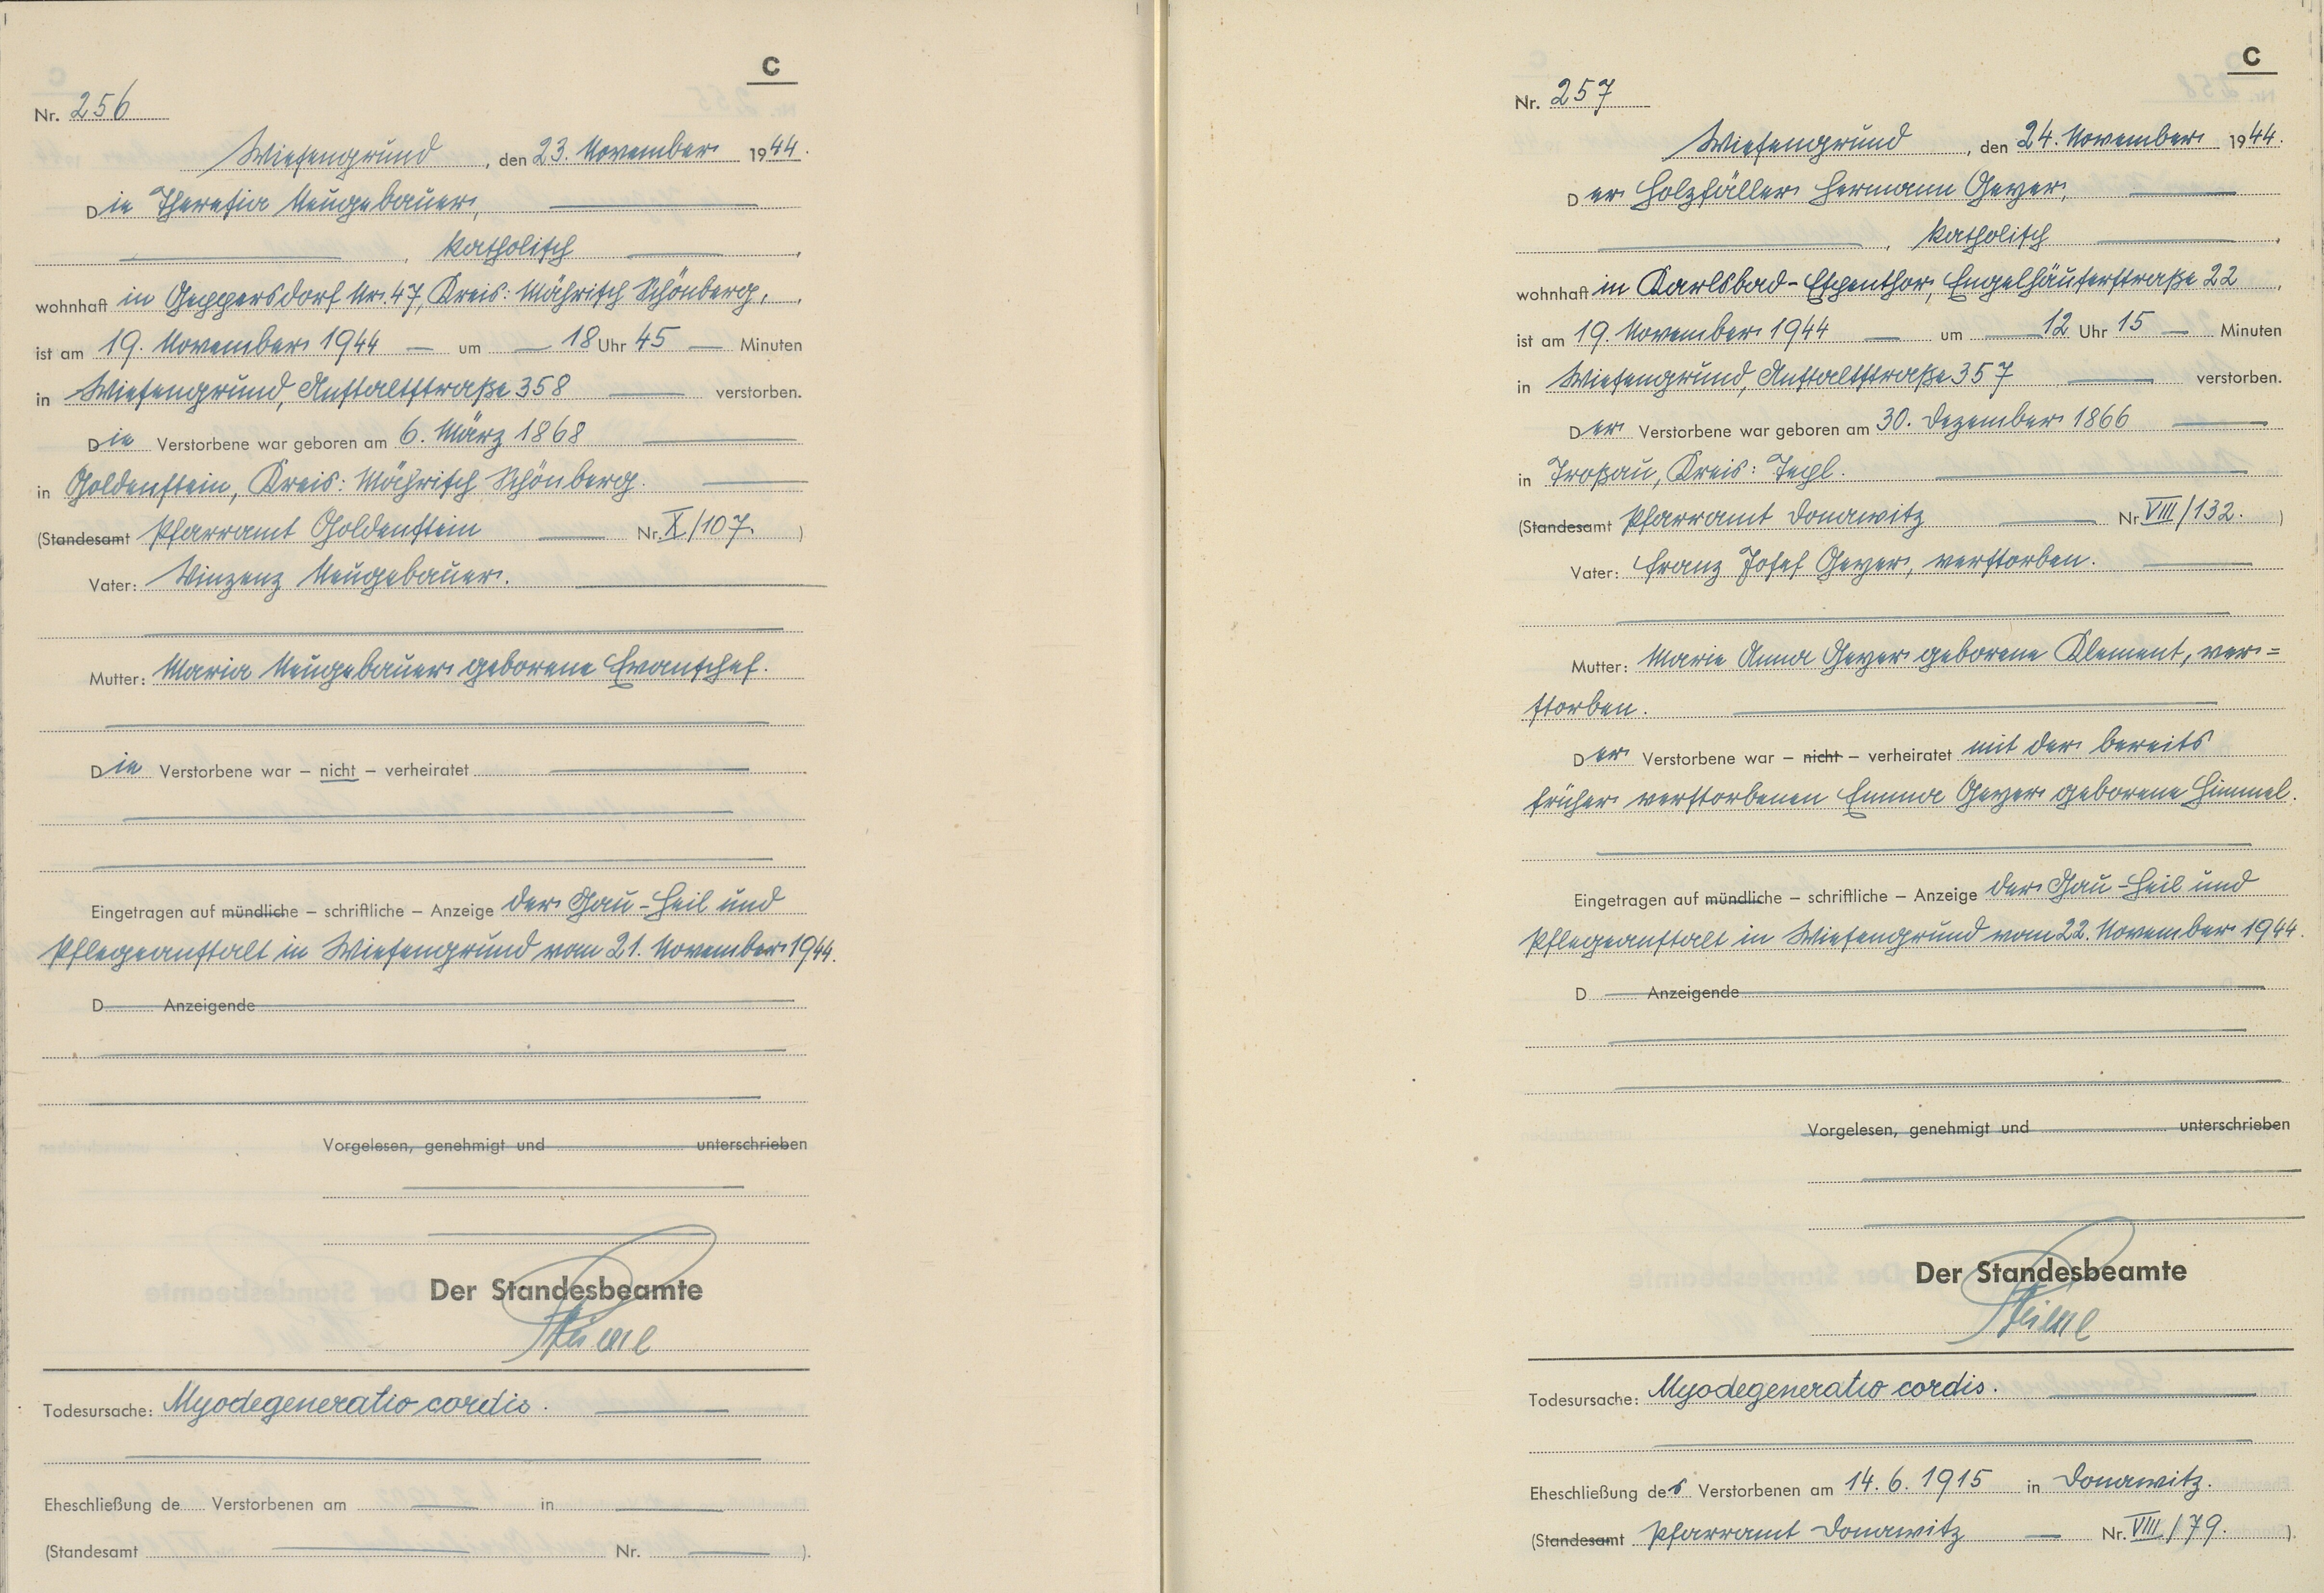 C
Nr. 256
Wiesengrund, den 23. November 1944.
Die Theresia Neugebauer,
, katholisch ,
wohnhaft in Geppersdorf Nr. 47, Kreis: Mährisch Schönberg,
ist am 19. November 1944 — um — 18 Uhr 45 — Minuten
in Wiesengrund, Anstaltstraße 358 — verstorben.
Die Verstorbene war geboren am 6. März 1868
in Goldenstein, Kreis: Mährisch Schönberg.
(Standesamt Pfarramt Goldenstein — Nr. X/107. )
Vater: Vinzenz Neugebauer.
Mutter: Maria Neugebauer geborene
Die Verstorbene war – nicht – verheiratet
Eingetragen auf mündliche – schriftliche – Anzeige der Gau-Heil und
Pflegeanstalt in Wiesengrund vom 21. November 1944.
D Anzeigende
Vorgelesen, genehmigt und unterschrieben
Der Standesbeamte
Todesursache: Myodegeneratio cordis.
Eheschließung de Verstorbenen am — in —
(Standesamt — Nr. — ).
C
Nr. 257
Wiesengrund, den 24. November 1944.
Der Holzfäller Hermann Geyer,
, katholisch ,
wohnhaft in Karlsbad-Espenthor, Engelhäuserstraße 22 ,
ist am 19. November 1944 — um — 12 Uhr 15 — Minuten
in Wiesengrund, Anstaltstraße 357 — verstorben.
Der Verstorbene war geboren am 30. Dezember 1866
in Troßau, Kreis: Tepl.
(Standesamt Pfarramt Donawitz — Nr. VIII/132. )
Vater: Franz Josef Geyer, verstorben.
Mutter: Marie Anna Geyer geborene Klement, ver=
storben.
Der Verstorbene war – nicht – verheiratet mit der bereits
früher verstorbenen Emma Geyer geborene Himmel.
Eingetragen auf mündliche – schriftliche – Anzeige der Gau-Heil und
Pflegeanstalt in Wiesengrund vom 22. November 1944.
D Anzeigende
Vorgelesen, genehmigt und unterschrieben
Der Standesbeamte
Todesursache: Myodegeneratio cordis.
Eheschließung des Verstorbenen am 14. 6. 1915 in Donawitz.
(Standesamt Pfarramt Donawitz — Nr. VIII/79. ).